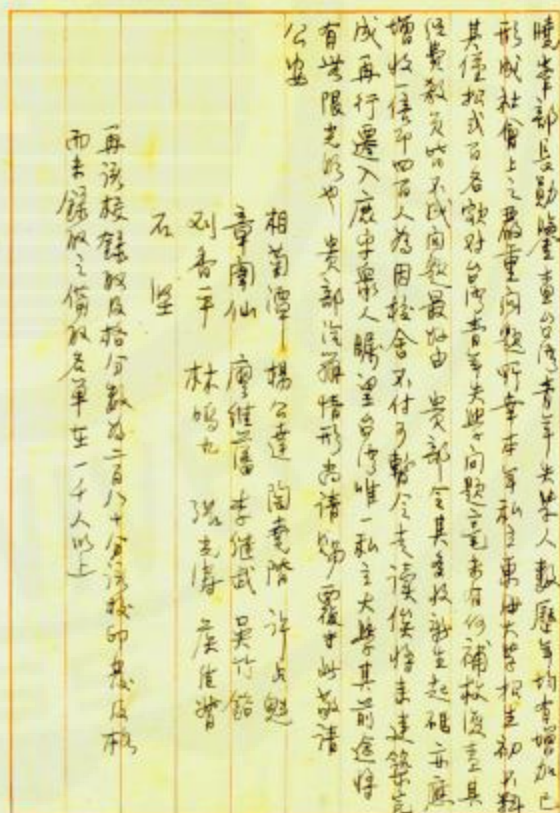 曉峯部長勛鑒查台灣青年失學人數歷年均有增加已
形成社會上之嚴重問題所幸本年私立東海大學招生初不料
其僅招弍百名額對台灣青年失學問題毫未有何補救復查其
經費教員皆不成問題最好由 貴部令其多收新生起碼亦應
增收一倍即四百人為因校舍不付可暫令走讀俟將來建築完
成再行遷入庶乎眾人矚望台灣唯一私立大學其前途將
有無限光明也 貴部洽辦情形尚請賜覆專此敬請
公安
相菊潭 楊公達 陶堯階 許占魁
章 仙 廖維藩 李繼武 吳竹銘
刘香平 林鳴九 張光濤 侯
石堅
再該校錄取及格分數為二百八十分該校印發及格
而未錄取之備取名單在一千人以上